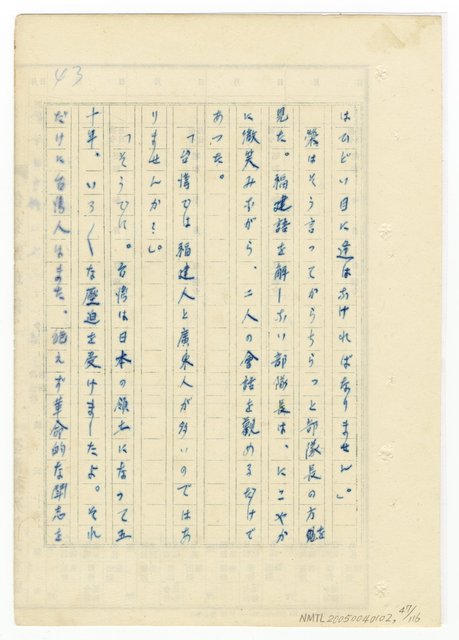 43
はひどい目に逢はなければなりません。」
榮はそう言ってからちらっと部隊長の方を
見た。福建語を解しない部隊長は、にこやか
に微笑みながら、二人の會話を觀めるだけで
あった。
「台湾では福建人と廣東人が多いのではあ
りませんか…。」
「そうです。台湾は日本の領土になって五
十年。いろ〱な壓迫を受けましたよ。それ
だけに台湾人はまた。絶えず革命的な鬪志を
NMTL20050040102, 47/116